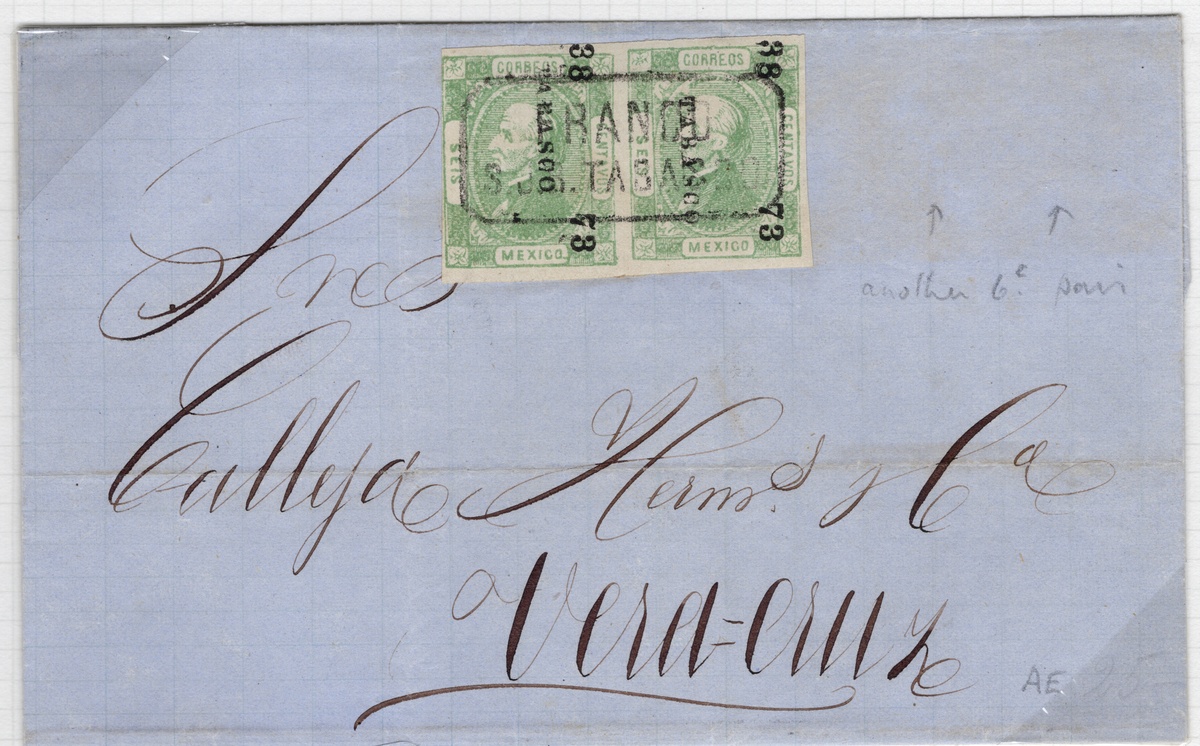 CORREOS CORREOS
SEIS CENTAVOS SEIS CENTAVOS
MEXICO MEXICO
38 TABASCO 73
38 TABASCO 73
FRANCO
S.J.B. TABASCO
another 6c pair
Sres
Calleja Hermos y Ca
Vera=cruz
AE 25